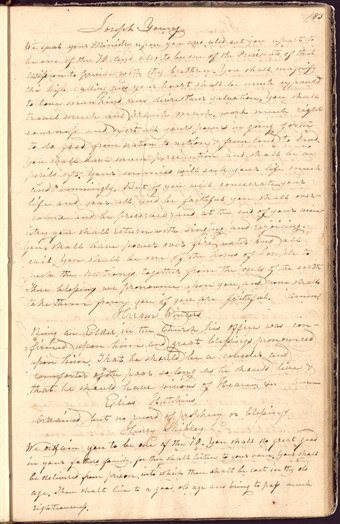 185
Joseph Young
We seal your Ministry upon you and set you apart to
be one of the 70. and also to be one of the Presidents of that
to preside with thy brethren. You shall magnify
the high calling and your heart shall be much expanded
to love mankind and desire their salvation. You shall
travel much and much, work much right-
eousness and exert all your powers in going forth
to do good from nation to nation & from land to land
You shall have much persecution and shall be in
perils oft. Your enemies will seek your life much
and cunningly. But if you will consecrate your
life and and be faithful you shall over-
come and be preserved and at the end of your min-
istry you shall return with singing and rejoicing
you shall have power over fire, water and all
You shall be one of the horns of Joseph to
push the nations together from the ends of the earth
These blessings we pronounce upon you and none shall
take them from you if you are faithful. Amen
Hiram Winters
Being an Elder in the Church, his office was con-
firmed upon him and great blessings pronounced
upon him. That he should be a and
comforter of the poor so long as he should live &
that he should have visions of Heaven &c. Amen
Elias Hutchins
Ordained, but no record of prophecy or blessings
Henry Shibley
We ordain you to be one of the 70. You shall do great good
in your fathers family, for they shall listen to your voice, you shall
be delivered from prison, into which thou shalt be cast in thy old
age. Thou shalt live to a good old age and bring to pass much
righteousness.